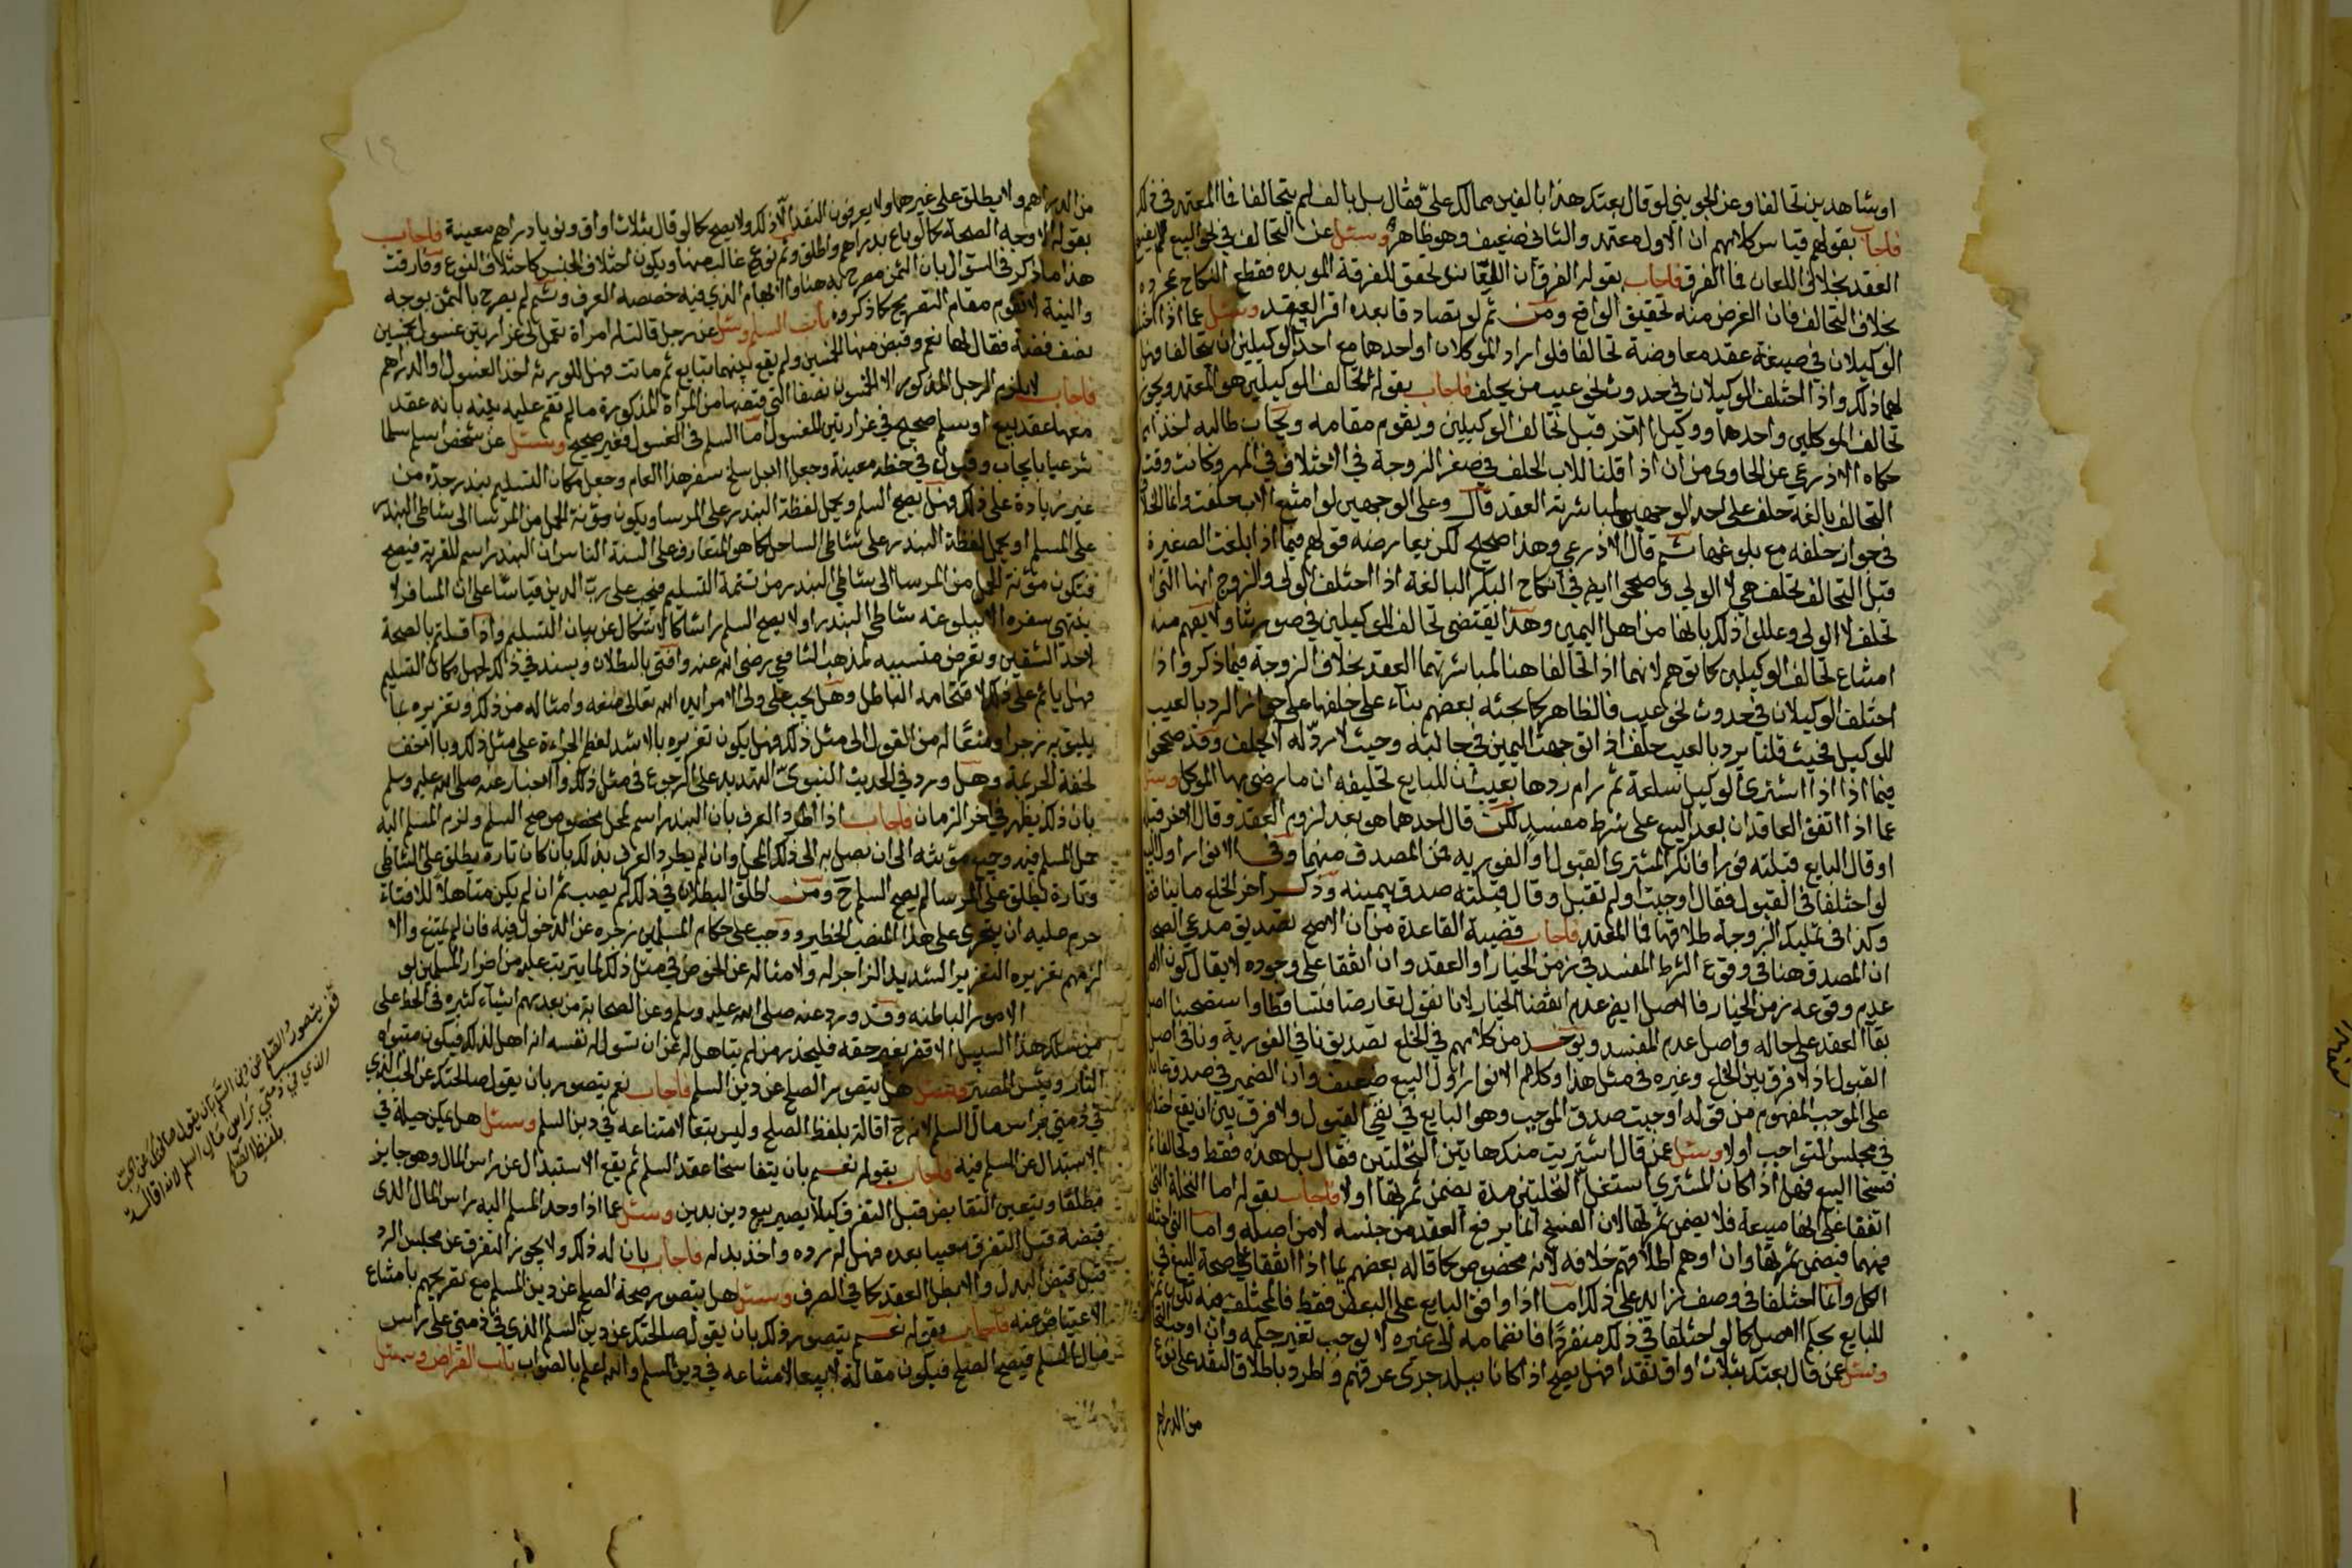 او شاهدين تحالفا وعن الجويني لو قال بعتك هذا بالفين مما لك علي فقال بل بالف لم يتحالفا فما المعتمد في ذلك
فاجاب بقولهم قياس كلامهم ان الاول معتمد والثاني ضعيف وهو ظاهر وسئل عن التحالف في نحو البيع لم يفسخ
العقد بخلافه في اللعان فما الفرق فاجاب بقوله الفرق ان اللعان لتحقق للفرقة الموبدة فقطع النكاح بمجرده
بخلاف التحالف فان الغرض منه تحقيق الواقع ومن ثم لو تصادقا بعده اقر العقد وسئل عما اذا اختلف
الوكيلان في صيغة عقد معاوضة تحالفا فلو اراد الموكلان او احدهما مع احد الوكيلين ان يتحالفا فهل
لهما ذلك واذا اختلف الوكيلان في حدوث نحو عيب من يحلف فاجاب بقوله تحالف الوكيلين هو المعتمد ويجوز
تحالف الموكلين واحدهما ووكيل الآخر قبل تحالف الوكيلين ويقوم مقامه ويجاب طالبه اخذا مما
حكاه الاذرعي عن الحاوي من ان اذا قلنا للاب الحلف في صغر الزوجة في اختلاف في المهر وكانت وقت
التحالف بالغة حلف على احد الوجهين لمباشرته العقد قال وعلى الوجهين لو امتنع الاب حلفت وانما الخلاف
في جواز حلفه مع بلوغها ثم قال الاذرعي وهذا صحيح لكن يعارضه قولهم فيما اذا بلغت الصغيرة
قبل التحالف تحلف هي لا الولي وصححوا ايضا في انكاح البكر البالغة اذا اختلف الولي والزوج انها التي
تحلف لا الولي وعللوا ذلك بانها من اهل اليمين وهذا يقتضي تحالف الوكيلين في صورتنا ولا يفهم منه
امتناع تحالف الوكيلين كما توهم لانهما اذا تحالفا هنا لمباشرتهما العقد بخلاف الزوجة فيما ذكر واذا
اختلف الوكيلان في حدوث نحو عيب فالظاهر كما بحثه بعضهم بناء على حلفها على جواز الرد بالعيب
للوكيل فحيث قلنا يرد بالعيب حلف اذا توجهت اليمين في جانبه وحيث لا رد له لا يحلف وقد صححوا
فيما اذا اشترى الوكيل سلعة ثم رام ردها بعيب ان للبايع تحليفه ان ما رضي بها الموكل وسئل
عما اذا اتفق العاقدان بعد البيع على شرط مفسد لكن قال احدهما هو بعد لزوم العقد وقال الاخر قبله
او قال البايع قبلته فورا فانكر المشتري القبول او الفورية من المصدق منهما وفي الانوار اول البيع
لو اختلفا في القبول فقال اوجبت ولم تقبل وقال قبلته صدق بيمينه وذكر اخر الخلع ما ينافيه
وكذا في تمليك الزوجة طلاقها فما المعتمد فاجاب قضية القاعدة من ان الاصح تصديق مدعي الصحة
ان المصدق هنا في وقوع الشرط المفسد في زمن الخيار او العقد وان اتفقا على وجوده لا يقال كون الاصل
عدم وقوعه زمن الخيار فالاصل ايضا عدم انقضا الخيار لانا نقول تعارضا فتساقطا واستصحبنا اصل
بقا العقد على حاله واصل عدم المفسد ويوخذ من كلامهم في الخلع تصديق نافي الفورية ونافي اصل
القبول اذ لا فرق بين الخلع وغيره في مثل هذا وكلام الانوار اول البيع ضعيف وان الضمير في صدق عائد
على الموجب المفهوم من قوله اوجبت صدق الموجب وهو البايع في نفي القبول ولا فرق بين ان يقع اختلافهما
في مجلس التواجب اولا وسئل عمن قال اشتريت منك هاتين النخلتين فقال بل هذه فقط وتحالفا ثم
فسخا البيع فهل اذا كان المشتري استغل النخلتين مدة يضمن ثمرتها او لا فاجاب بقوله اما النخلة التي
اتفقا على انها مبيعة فلا يضمن ثمرتها لان الفسخ انما يرفع العقد من حينه لا من اصله واما التي اختلفا
فيهما فيضمن ثمرتها وان اوهم اطلاقهم خلافه لانه مخصوص كما قاله بعضهم بما اذا اتفقا على صحة البيع في
الكل وانما اختلفا في وصف زايد على ذلك اما اذا وافق البايع على البعض فقط فالمختلف فيه تكون ثمرته
للبايع بحكم الاصل كما لو اختلفا في ذلك منفردا فانضمامه الى غيره لا يوجب تغير حكمه وان اوجب التحالف
وسئل عمن قال بعتك بثلاث اواق نقدا فهل يصح اذا كانا ببلد جرى عرفهم واطرد باطلاق النقد على نوع
من الدراهم
من الدراهم ولا يطلق على غيرها ولا يعرفون النقد الا ذلك ولا يصح كما لو قال بثلاث اواق ونويا دراهم معينة فاجاب
بقوله الاوجه الصحة كما لو باع بدراهم واطلق وثم نوع غالب منها ويكون اختلاف الجنس كاختلاف النوع وفارقت
هذا ما ذكر في السؤال بان الثمن مصرح به هنا والابهام الذي فيه خصصه العرف وثم لم يصرح بالثمن بوجه
والنية لا تقوم مقام التصريح كما ذكروه باب السلم وسئل عن رجل قالت له امراة تعمل لي غرارتين غسول بخمسين
نصف فضة فقال لها نعم وقبض منها الخمسين ولم يقع بينهما تبايع ثم ماتت فهل للورثة اخذ الغسول او الدراهم
فاجاب لا يلزم الرجل المذكور الا الخمسون نصفا التي قبضها من المراة المذكورة ما لم تقم عليه بينة بانه عقد
معها عقد بيع او سلم صحيح في غرارتين الغسول اما السلم في الغسول فغير صحيح وسئل عن شخص اسلم سلما
شرعيا بايجاب وقبول في حنطة معينة وجعل الاجل سلخ سفر هذا العام وجعل مكان التسليم بندر جدة من
غير زيادة على ذلك فهل يصح السلم ويحمل لفظة البندر على المرسا ويكون مؤنة الحمل من المرسا الى شاطي البندر
على المسلم او يحمل لفظة البندر على شاطي الساحل كما هو المتعارف على السنة الناس ان البندر اسم للقرية فيصح
فتكون مؤنة الحمل من المرسا الى شاطي البندر من تتمة التسليم فيجب على رب الدين قياسا على ان المسافر لا
ينتهي سفره الا ببلوغه شاطي البندر او لا يصح السلم راسا كالاشكال عن بيان التسليم واذا قلتم بالصحة
احد الشقين وتعرض منتسب لمذهب الشافعي رضي الله عنه وافتى بالبطلان ويسند في ذلك لجهل مكان التسليم
فهل ياثم على ذلك لاقتحامه الباطل وهل يجب على ولي الامر ايده الله تعالى منعه وامثاله من ذلك وتعزيره بما
يليق به زجرا ومنعا له من القول الى مثل ذلك وهل يكون تعزيره بالاشد لعظم الجراءة على مثل ذلك او بالاخف
لخفة الجريمة وهل ورد في الحديث النبوي التهديد على الرجوع في مثل ذلك والاخبار عنه صلى الله عليه وسلم
بان ذلك يظهر في اخر الزمان فاجاب اذا اطرد العرف بان البندر اسم لمحل مخصوص صح السلم ولزم المسلم اليه
حمل المسلم فيه وجميع مؤنته الى ان يصل به الى ذلك المحل وان لم يطرد العرف بذلك بان كان تارة يطلق على الشاطي
وتارة يطلق على المرسا لم يصح السلم ح ومن اطلق البطلان في ذلك لم يصب ثم ان لم يكن متاهلا للافتاء
حرم عليه ان يتجرى على هذا المنصب الخطير ووجب على حكام المسلمين زجره عن الدخول فيه فان لم يمتنع والا
لزمهم تعزيره التعزير الشديد الزاجر له ولامثاله عن الخوض في مثل ذلك لما يترتب عليه من اضرار المسلمين لو
الامور الباطنة وقد ورد عنه صلى الله عليه وسلم وعن الصحابة من بعدهم اشياء كثيرة في الحط على
من سلك هذا السبيل الاقفر بغير حقه فليحذر من لم يتاهل له من ان تسول له نفسه انه اهل لذلك فيكون مثواه
النار وبئس المصير وسئل هل يتصور الصلح عن دين السلم فاجاب نعم يتصور بان يقول صالحتك عن الحب الذي
في ذمتي براس مال السلم لانه ح اقالة بلفظ الصلح وليس بيعا لامتناعه في دين السلم وسئل هل يمكن حيلة في
الاستبدال عن المسلم فيه فاجاب بقوله نعم بان يتفاسخا عقد السلم ثم يقع الاستبدال عن راس المال وهو جايز
مطلقا ويتعين التقابض قبل التفرق كيلا يصير بيع دين بدين وسئل عما اذا وجد المسلم اليه براس المال الذي
قبضه قبل التفرق معيبا بعده فهل له رده واخذ بدله فاجاب بان له ذلك ولا يجوز التفرق عن مجلس الرد
قبل قبض البدل والا بطل العقد كما في الصرف وسئل هل يتصور صحة الصلح عن دين السلم مع تصريحهم بامتناع
الاعتياض عنه فاجاب بقوله نعم يتصور ذلك بان يقول صالحتك عن دين السلم الذي في ذمتي على راس
مال السلم فيصح الصلح فيكون مقالة لا بيعا لامتناعه في دين السلم والله اعلم بالصواب باب القراض وسئل
قف يتصور الصلح عن دين السلم بان يقول صالحتك عن الحب
الذي في ذمتي براس مال السلم لانه اقالة
بلفظ الصلح